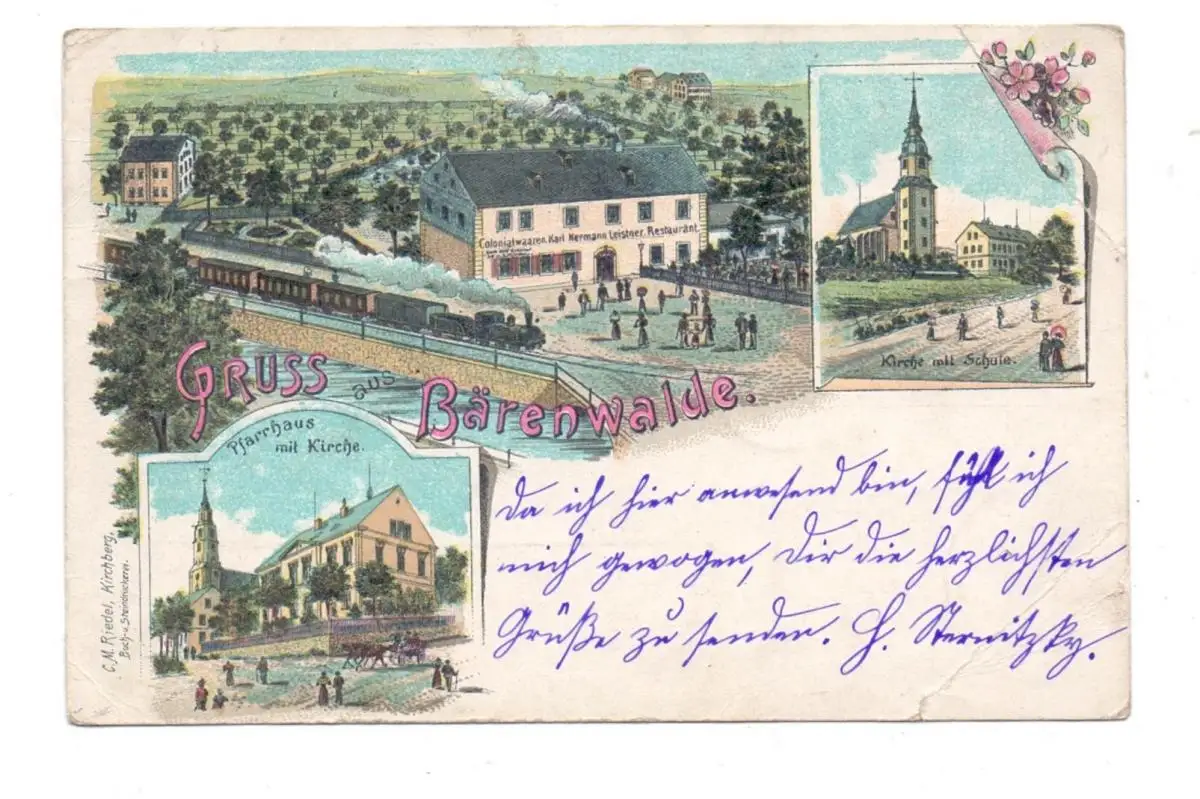 Colonialwaaren. Karl Hermann Leistner. Restaurant.
Kirche mit Schule.
Gruss
aus
Bärenwalde.
Pfarrhaus
mit Kirche.
C. M. Riedel, Kirchberg,
Buch- u. Steindruckerei.
Da ich hier anwesend bin, fühl ich
mich gewogen, Dir die herzlichsten
Grüße zu senden. H. Sternitzky.